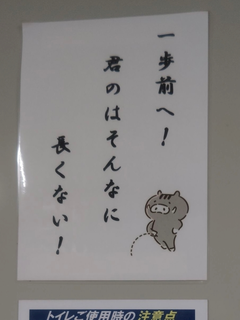 一歩前へ！
君のはそんなに
長くない！
トイレご使用時の注意点